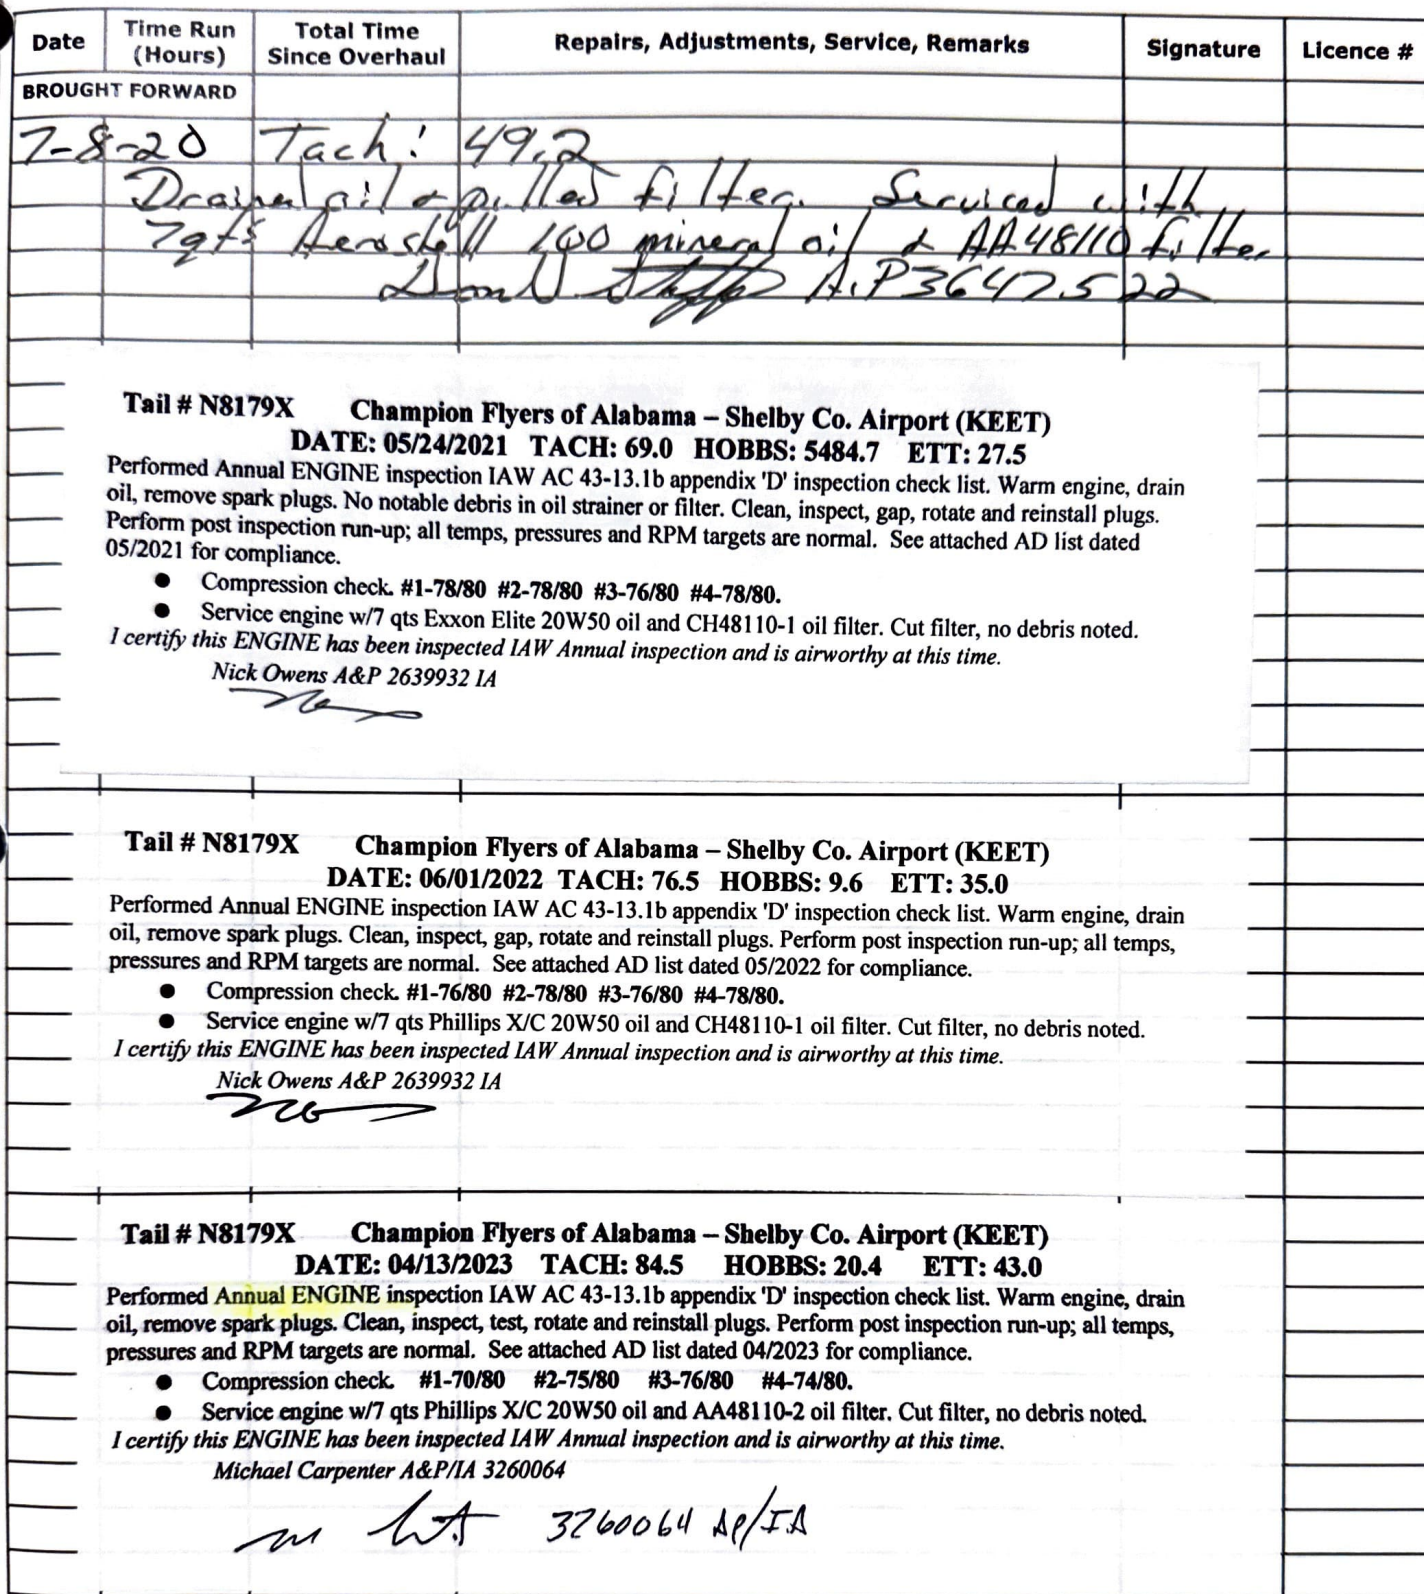 Date Time Run (Hours) Total Time Since Overhaul Repairs, Adjustments, Service, Remarks Signature Licence #
BROUGHT FORWARD
7-8-20 Tach: 49.2
Drained oil & pulled filter. Serviced with
7qts Aeroshell 100 mineral oil & AA48110 filter
A&P3647522
Tail # N8179X Champion Flyers of Alabama – Shelby Co. Airport (KEET)
DATE: 05/24/2021 TACH: 69.0 HOBBS: 5484.7 ETT: 27.5
Performed Annual ENGINE inspection IAW AC 43-13.1b appendix 'D' inspection check list. Warm engine, drain
oil, remove spark plugs. No notable debris in oil strainer or filter. Clean, inspect, gap, rotate and reinstall plugs.
Perform post inspection run-up; all temps, pressures and RPM targets are normal. See attached AD list dated
05/2021 for compliance.
● Compression check. #1-78/80 #2-78/80 #3-76/80 #4-78/80.
● Service engine w/7 qts Exxon Elite 20W50 oil and CH48110-1 oil filter. Cut filter, no debris noted.
I certify this ENGINE has been inspected IAW Annual inspection and is airworthy at this time.
Nick Owens A&P 2639932 IA
Tail # N8179X Champion Flyers of Alabama – Shelby Co. Airport (KEET)
DATE: 06/01/2022 TACH: 76.5 HOBBS: 9.6 ETT: 35.0
Performed Annual ENGINE inspection IAW AC 43-13.1b appendix 'D' inspection check list. Warm engine, drain
oil, remove spark plugs. Clean, inspect, gap, rotate and reinstall plugs. Perform post inspection run-up; all temps,
pressures and RPM targets are normal. See attached AD list dated 05/2022 for compliance.
● Compression check. #1-76/80 #2-78/80 #3-76/80 #4-78/80.
● Service engine w/7 qts Phillips X/C 20W50 oil and CH48110-1 oil filter. Cut filter, no debris noted.
I certify this ENGINE has been inspected IAW Annual inspection and is airworthy at this time.
Nick Owens A&P 2639932 IA
Tail # N8179X Champion Flyers of Alabama – Shelby Co. Airport (KEET)
DATE: 04/13/2023 TACH: 84.5 HOBBS: 20.4 ETT: 43.0
Performed Annual ENGINE inspection IAW AC 43-13.1b appendix 'D' inspection check list. Warm engine, drain
oil, remove spark plugs. Clean, inspect, test, rotate and reinstall plugs. Perform post inspection run-up; all temps,
pressures and RPM targets are normal. See attached AD list dated 04/2023 for compliance.
● Compression check. #1-70/80 #2-75/80 #3-76/80 #4-74/80.
● Service engine w/7 qts Phillips X/C 20W50 oil and AA48110-2 oil filter. Cut filter, no debris noted.
I certify this ENGINE has been inspected IAW Annual inspection and is airworthy at this time.
Michael Carpenter A&P/IA 3260064
3260064 AP/IA